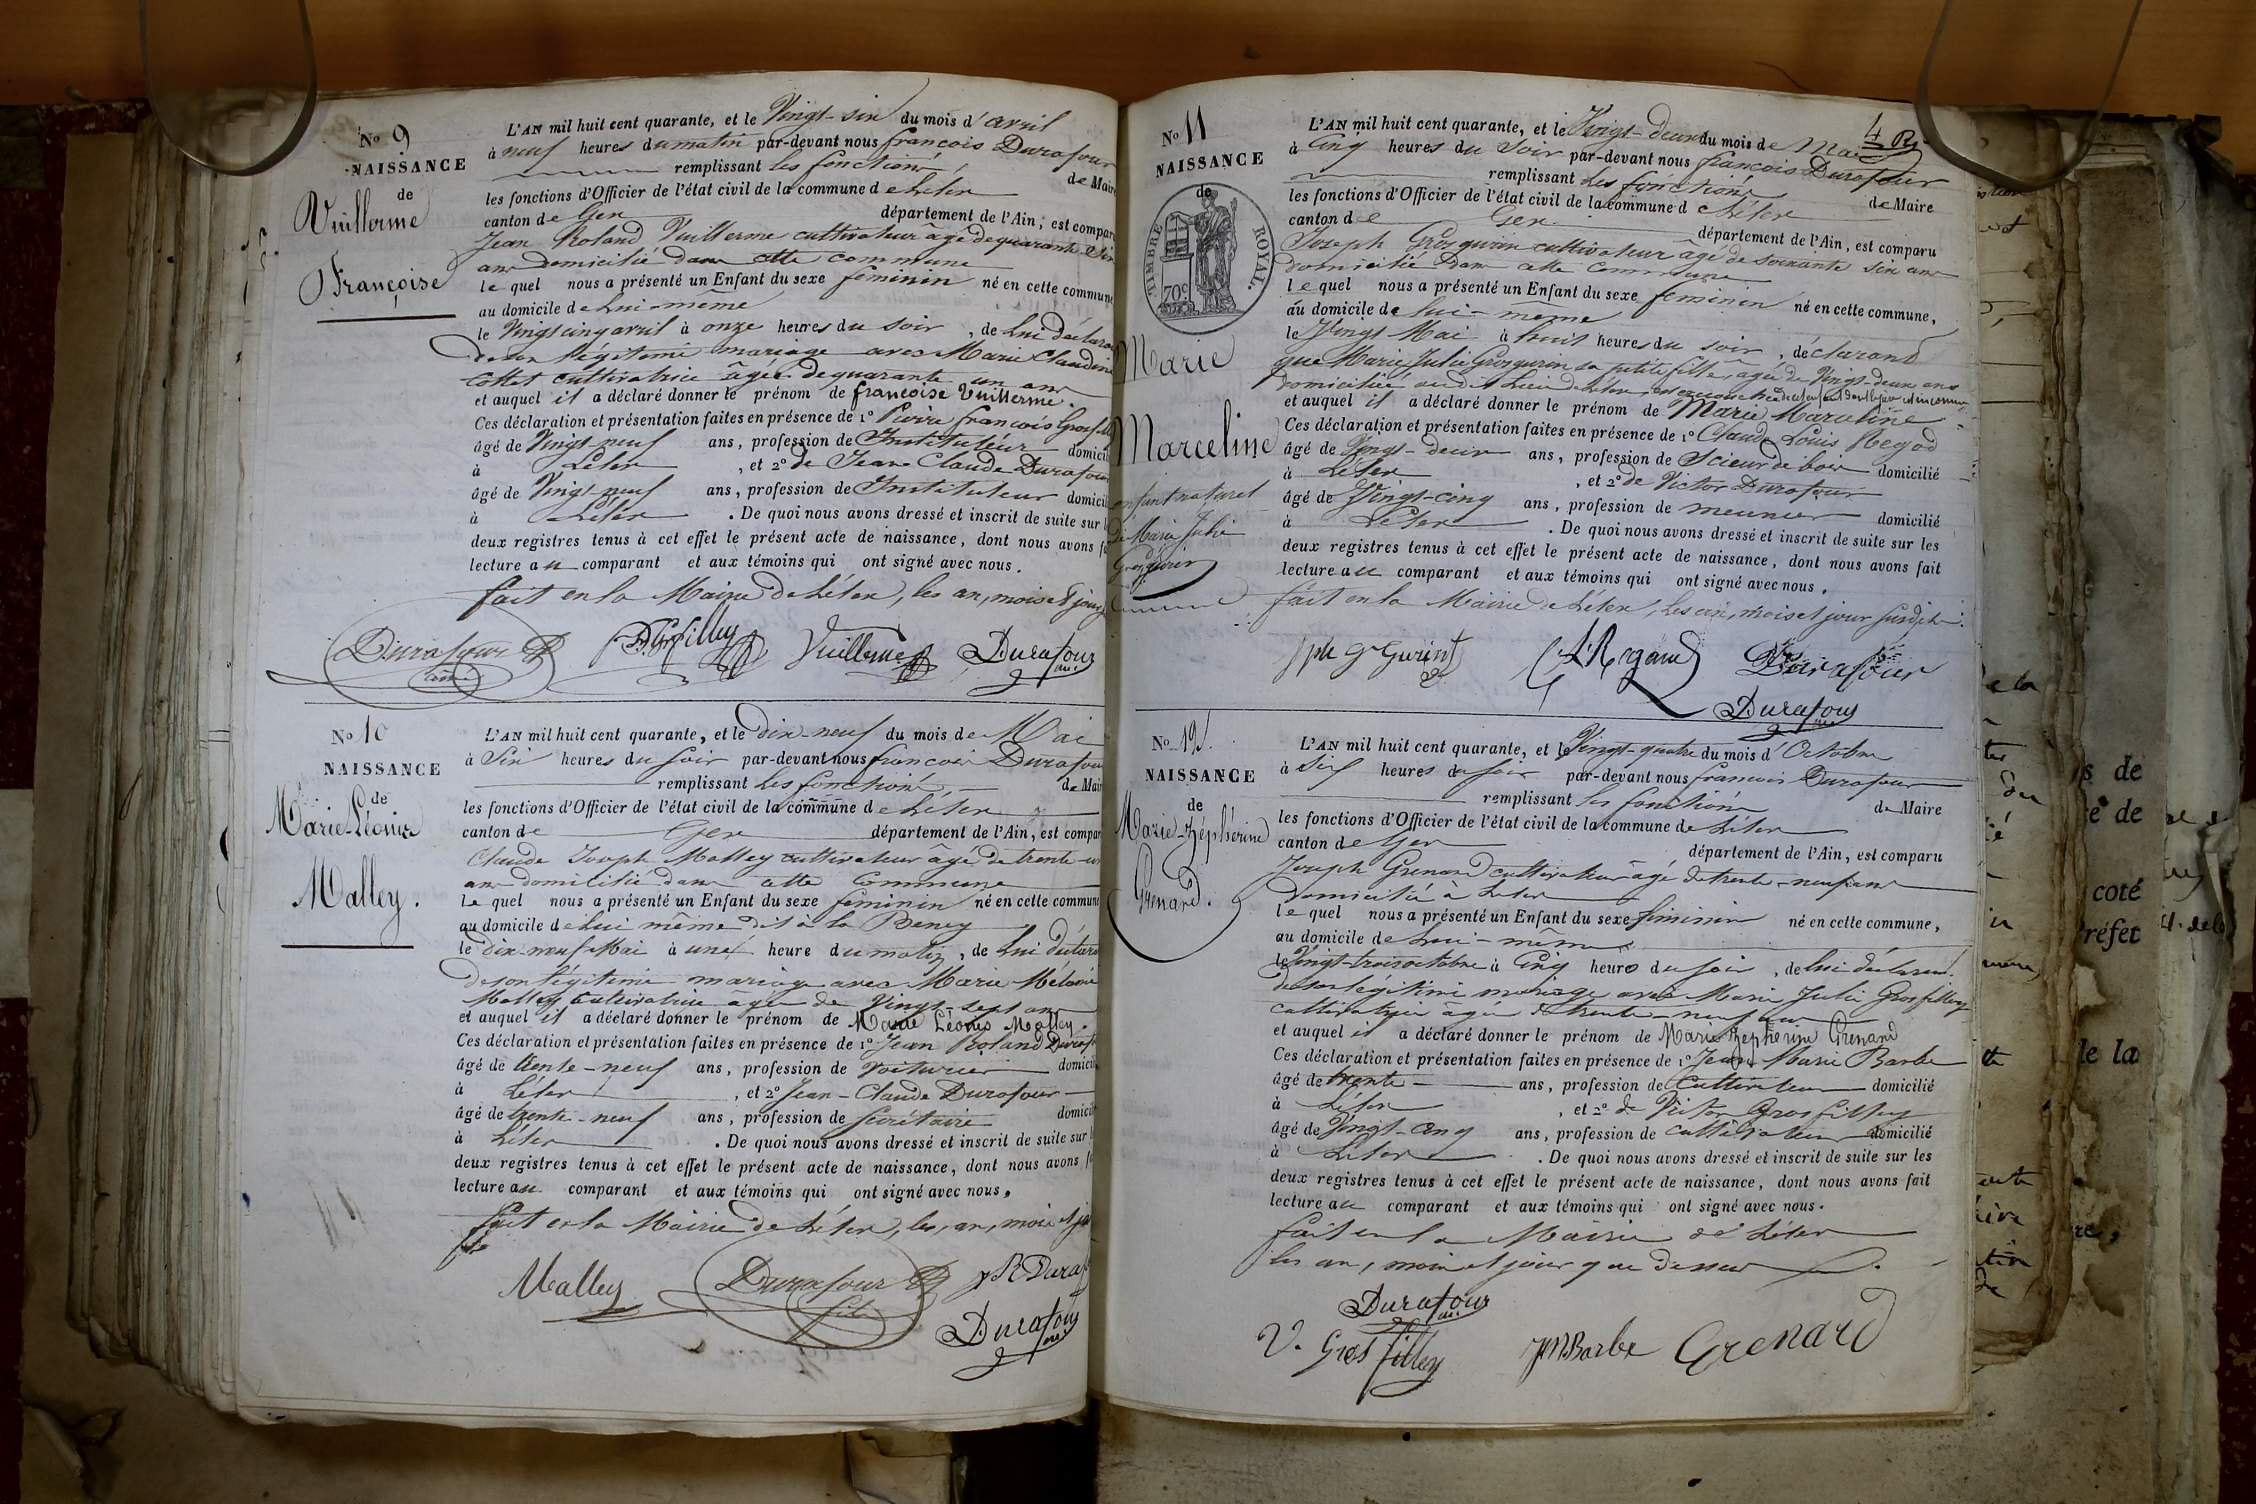 No 9
NAISSANCE
de
Vuillerme
Françoise
L'AN mil huit cent quarante, et le Vingt-six du mois d'avril
à neuf heures du matin par-devant nous françois Durafour
remplissant les fonctions de Maire
les fonctions d'Officier de l'état civil de la commune de Lélex
canton de Gex département de l'Ain, est compar
Jean Roland Vuillerme cultivateur âgé de quarante six
ans domicilié dans cette commune
lequel nous a présenté un Enfant du sexe féminin né en cette commune
au domicile de Lui-même
le Vingt cinq avril à onze heures du soir, de Lui déclara
de son légitime mariage avec Marie Claudine
Cottet cultivatrice âgée de quarante un ans
et auquel il a déclaré donner le prénom de françoise Vuillerme.
Ces déclaration et présentation faites en présence de 1° Pierre François Grosfill
âgé de Vingt-neuf ans, profession de Instituteur domicil
à Lélex, et 2° de Jean Claude Durafour
âgé de Vingt-neuf ans, profession de Instituteur domicil
à Lélex. De quoi nous avons dressé et inscrit de suite sur l
deux registres tenus à cet effet le présent acte de naissance, dont nous avons f
lecture au comparant et aux témoins qui ont signé avec nous.
fait en la Mairie de Lélex, les an, mois et jour
Durafour
Vuillerme
Durafour
No 10
NAISSANCE
de
Marie-Léonie
Malley.
L'AN mil huit cent quarante, et le dix-neuf du mois de Mai
à Six heures du soir par-devant nous francois Durafour
remplissant les fonctions de Mair
les fonctions d'Officier de l'état civil de la commune de Lélex
canton de Gex département de l'Ain, est compar
Claude Joseph Malley cultivateur âgé de trente-un
ans domicilié dans cette commune
lequel nous a présenté un Enfant du sexe féminin né en cette commune
au domicile de Lui même dit à la
le dix-neuf Mai à une heure du matin, de Lui déclara
de son légitime mariage avec Marie Mélanie
Malley cultivatrice âgée de Vingt-sept ans
et auquel il a déclaré donner le prénom de Marie Léonie Malley.
Ces déclaration et présentation faites en présence de 1° Jean Roland Duraf
âgé de trente-neuf ans, profession de Voiturier domicil
à Lélex, et 2° Jean-Claude Durafour
âgé de trente-neuf ans, profession de Secrétaire domicil
à Lélex. De quoi nous avons dressé et inscrit de suite sur l
deux registres tenus à cet effet le présent acte de naissance, dont nous avons f
lecture au comparant et aux témoins qui ont signé avec nous.
fait en la Mairie de Lélex, les, an, mois et jou
Malley
Durafour
fils
JR Duraf
Durafour
4
No 11
NAISSANCE
de
TIMBRE ROYAL.
70c
Marie
Marceline
enfant naturel
de Marie Julie
Grosgurin
L'AN mil huit cent quarante, et le Vingt-deux du mois de Mai
à Cinq heures du Soir par-devant nous françois Durafour
remplissant les fonctions de Maire
les fonctions d'Officier de l'état civil de la commune de Lélex
canton de Gex département de l'Ain, est comparu
Joseph Grosgurin cultivateur âgé de soixante six ans
domicilié dans cette commune
lequel nous a présenté un Enfant du sexe féminin né en cette commune,
au domicile de lui-même
le Vingt Mai à huit heures du soir, déclarant
que Marie Julie Grosgurin sa petite fille, âgée de Vingt-deux ans
domiciliée au dit lieu de Lélex est accouchée de cet enfant dont le père est inconnu
et auquel il a déclaré donner le prénom de Marie Marceline
Ces déclaration et présentation faites en présence de 1° Claude Louis Regod
âgé de Vingt-deux ans, profession de Scieur de bois domicilié
à Lélex, et 2° de Victor Durafour
âgé de Vingt-cinq ans, profession de meunier domicilié
à Lélex. De quoi nous avons dressé et inscrit de suite sur les
deux registres tenus à cet effet le présent acte de naissance, dont nous avons fait
lecture au comparant et aux témoins qui ont signé avec nous.
fait en la Mairie de Lélex, les an, mois et jour susdits.
Jph Gr Gurint
Durafour
Durafour
No 12.
NAISSANCE
de
Marie-Zéphérine
Grenard.
L'AN mil huit cent quarante, et le Vingt-quatre du mois d'Octobre
à Six heures du soir par-devant nous francois Durafour
remplissant les fonctions de Maire
les fonctions d'Officier de l'état civil de la commune de Lélex
canton de Gex département de l'Ain, est comparu
Joseph Grenard cultivateur âgé de trente-neuf ans
domicilié à Lélex
lequel nous a présenté un Enfant du sexe féminin né en cette commune,
au domicile de Lui-même
le Vingt-trois octobre à Cinq heures du soir, de lui déclarant
de son légitime mariage avec Marie Julie Grosfilley
cultivatrice âgée de trente-neuf ans
et auquel il a déclaré donner le prénom de Marie Zephérine Grenard
Ces déclaration et présentation faites en présence de 1° Jean Marie Barbe
âgé de trente ans, profession de Cultivateur domicilié
à Lélex, et 2° de Victor Grosfilley
âgé de Vingt-cinq ans, profession de cultivateur domicilié
à Lélex. De quoi nous avons dressé et inscrit de suite sur les
deux registres tenus à cet effet le présent acte de naissance, dont nous avons fait
lecture au comparant et aux témoins qui ont signé avec nous.
fait en la Mairie de Lélex
les an, mois et jour que dessus.
Durafour
V. Gros filley
JM Barbe
Grenard
de
de
coté
réfet
de la